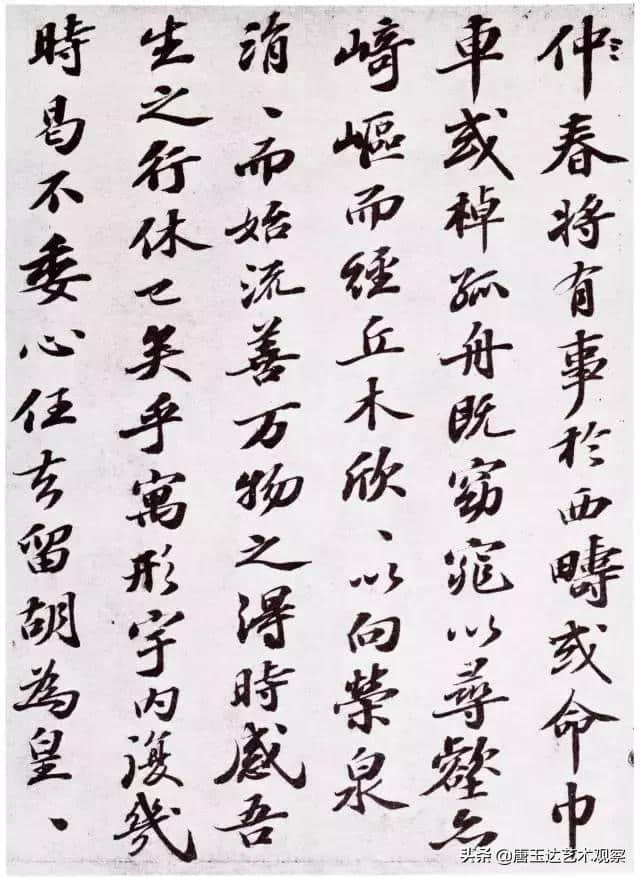 仲春将有事於西疇或命巾
車或棹孤舟既窈窕以尋壑亦
崎嶇而經丘木欣、以向榮泉
涓、而始流善万物之得時感吾
生之行休已矣乎寓形宇内復幾
時曷不委心任去留胡為皇、
头条 @唐玉达艺术观察